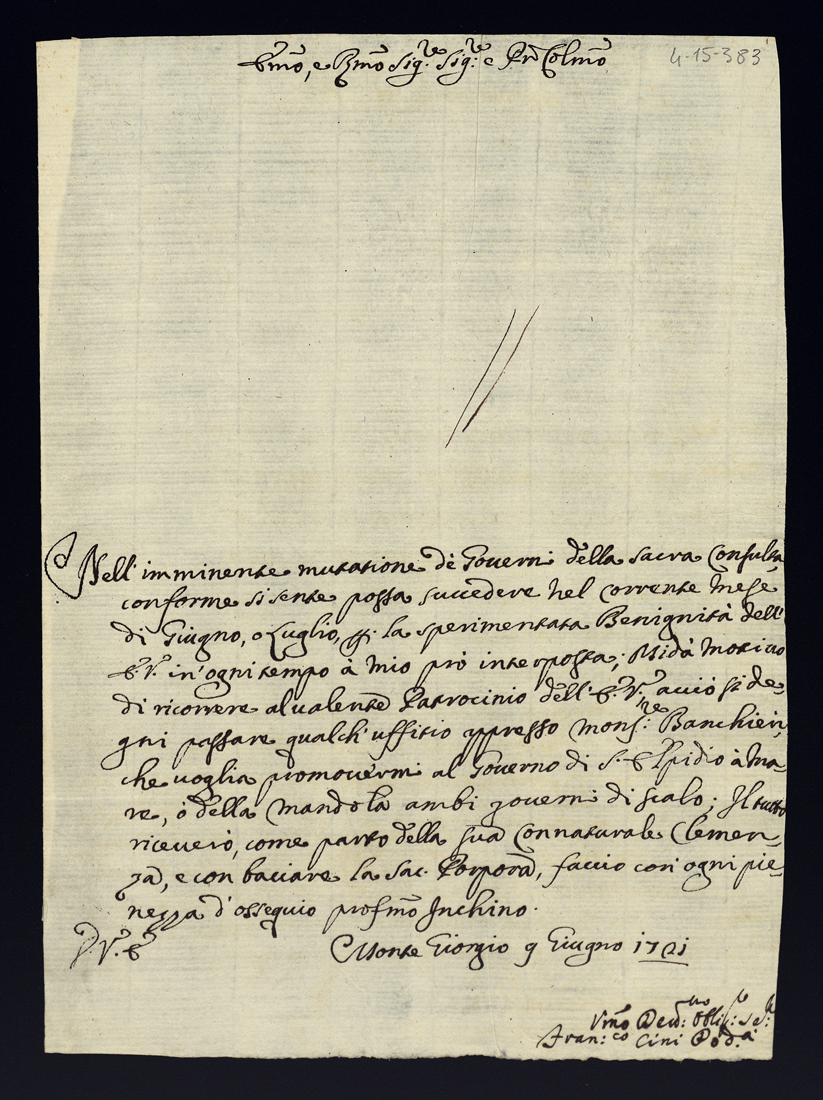 Emo, e Rmo Sig.re Sig.re e Pn Colmo
4-15-383
Nell' imminente mutatione de Governi della Sacra Consulta,
conforme si sente possa succedere nel corrente Mese
di Giugno, o Luglio, la sperimentata Benignità dell'
E.V. in' ogni tempo à Mio prò interposta; Mi dà Motivo
di ricorrere al valente Patrocinio dell' E.V. acciò si de-
gni passare qualch' uffitio appresso Mons.re Banchieri,
che voglia promovermi al Governo di S. Elpidio à Ma-
re, ò della Mandola ambi governi di scalo; Il tutto
riceverò, come parto della sua Connaturale Clemen-
za, e con baciare la Sac. Porpora, faccio con' ogni pie-
nezza d'ossequio profmo Inchino.
D.V.E
Monte Giorgio 9 Giugno 1721
Vmo Devo: Obli:
Fran:co Cini Pod.à